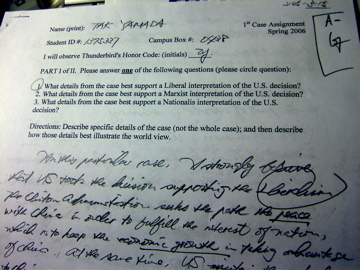 Name (print): TAK YAMADA
1st Case Assignment
Student ID #:
Campus Box #:
Spring 2006
I will observe Thunderbird's Honor Code: (initials)
A-
PART I of II. Please answer one of the following questions (please circle question):
1. What details from the case best support a Liberal interpretation of the U.S. decision?
2. What details from the case best support a Marxist interpretation of the U.S. decision?
3. What details from the case best support a Nationalis interpretation of the U.S.
decision?
Directions: Describe specific details of the case (not the whole case); and then describe
how those details best illustrate the world view.
In this particular case, I strongly believe
that US took the decision supporting the
the Clinton Administration seeks the path the peace
with China in order to fulfill the interest of nation,
which is to keep the economic growth in taking
of China. at the same time, US